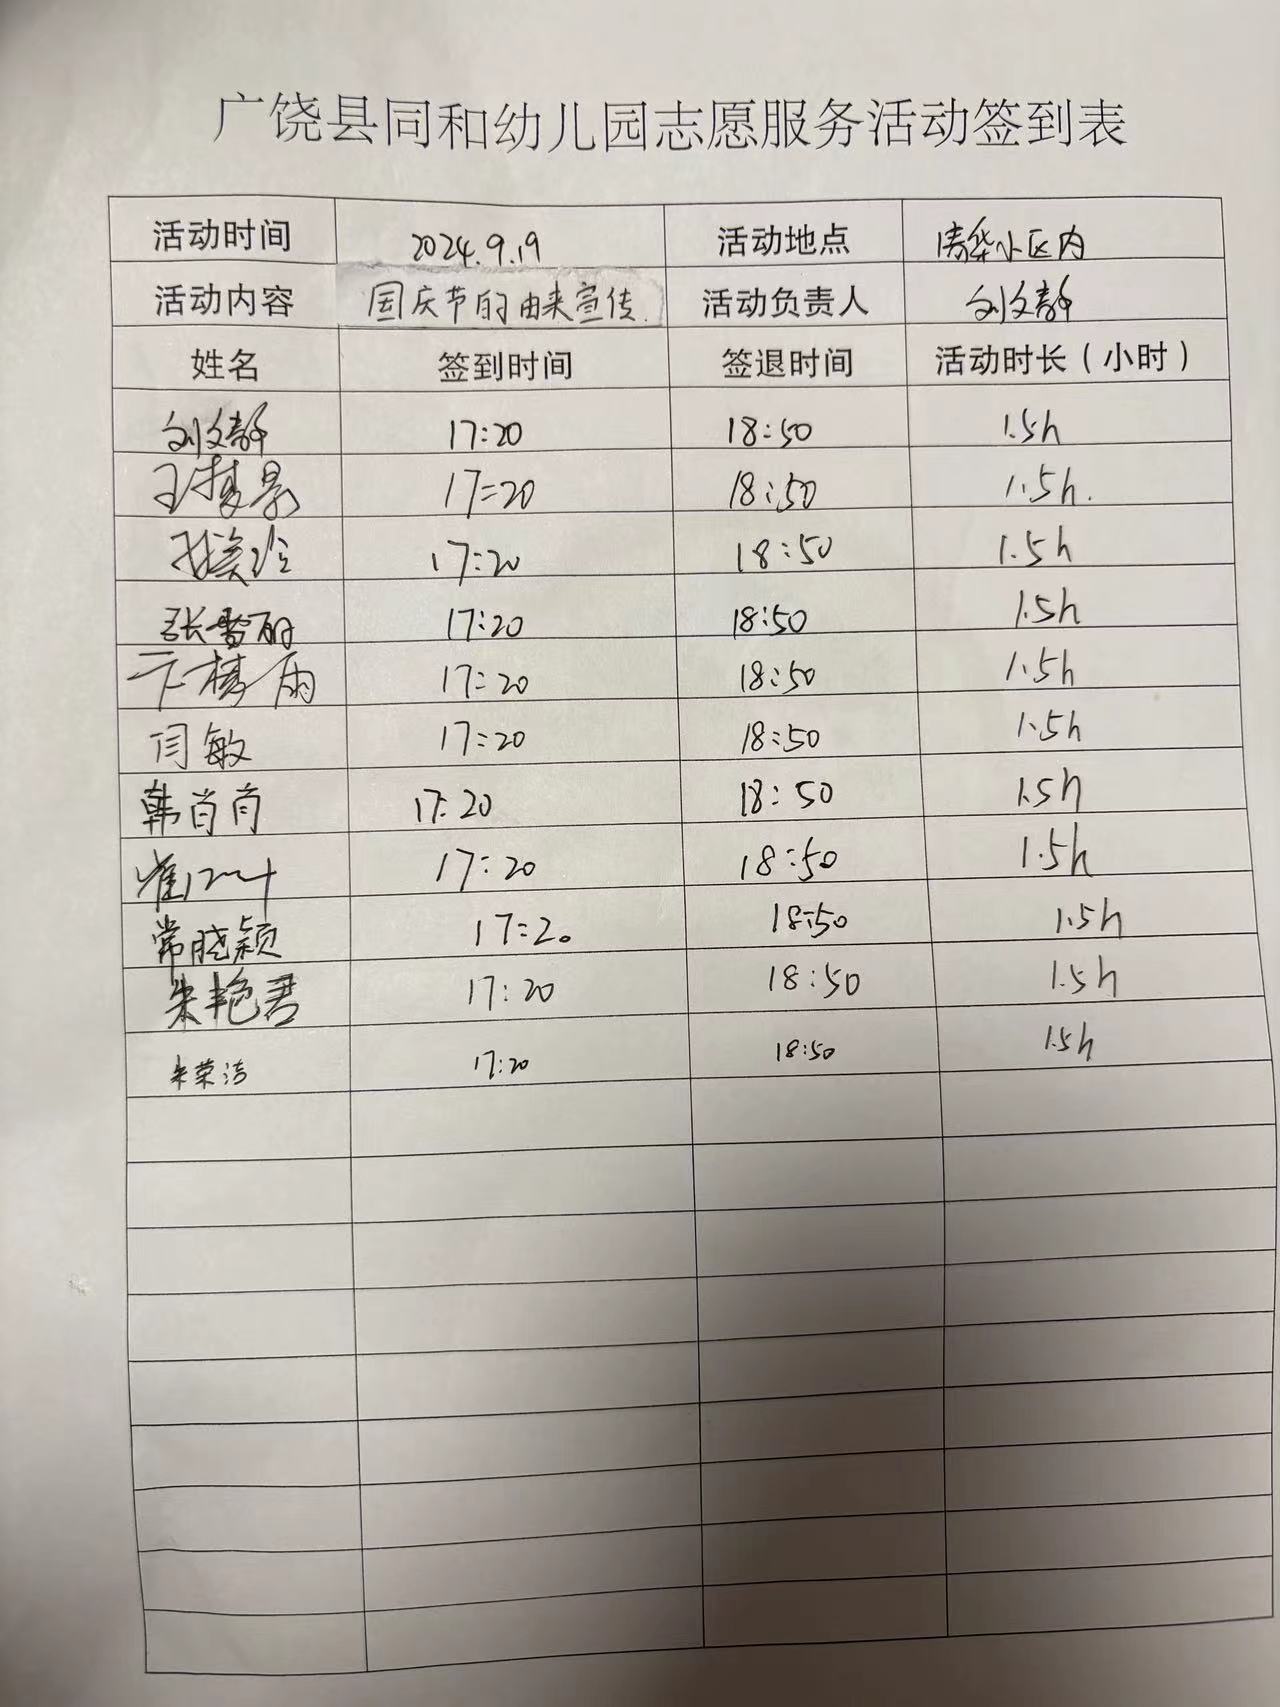 广饶县同和幼儿园志愿服务活动签到表
活动时间 2024.9.19 活动地点 清华小区内
活动内容 国庆节的由来宣传. 活动负责人 刘文静
姓名 签到时间 签退时间 活动时长（小时）
刘文静 17:20 18:50 1.5h
王梦景 17:20 18:50 1.5h.
17:20 18:50 1.5h
张雪丽 17:20 18:50 1.5h
17:20 18:50 1.5h
闫敏 17:20 18:50 1.5h
韩肖肖 17:20 18:50 1.5h
崔 17:20 18:50 1.5h
常晓颖 17:20 18:50 1.5h
朱艳君 17:20 18:50 1.5h
朱荣洁 17:20 18:50 1.5h